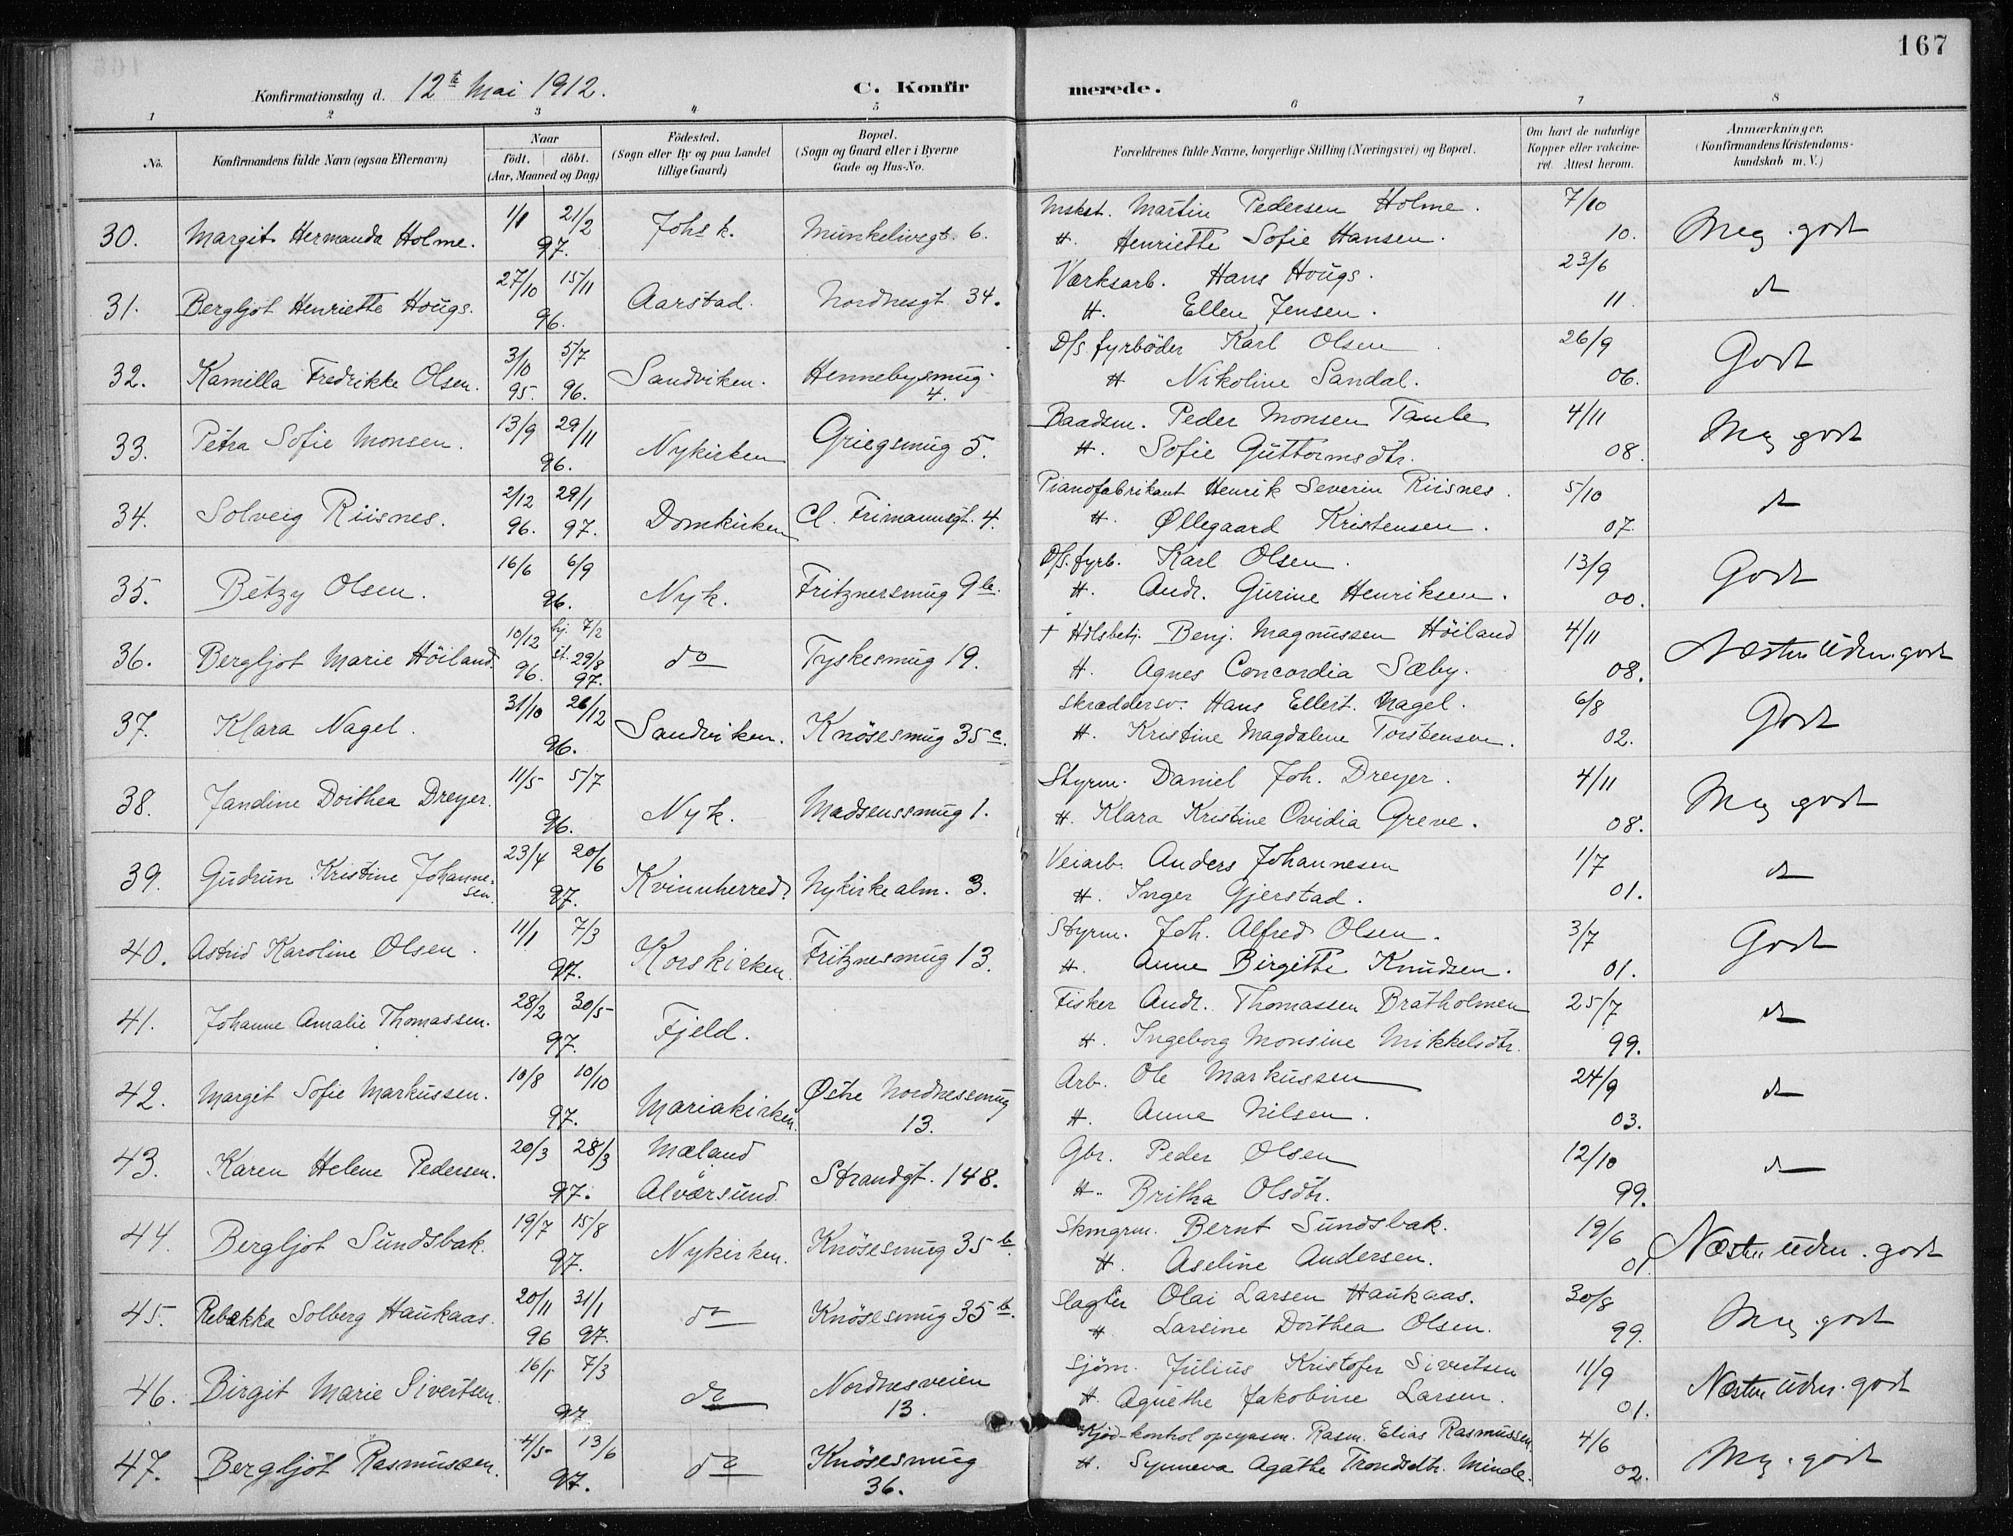 167
Konfirmationsdag d. 12te Mai 1912. C. Konfirmerede.
1 2 3 4 5 6 7 8
No. Konfirmandens fulde Navn (ogsaa Efternavn) Naar födt. döbt. (Aar, Maaned og Dag) Födested. (Sogn eller By og paa Landet tillige Gaard) Bopæl. (Sogn og Gaard eller i Byerne Gade og Hus-No. Forældrenes fulde Navne, borgerlige Stilling (Næringsvei) og Bopæl. Om havt de naturlige Kopper eller vakcineret. Attest herom. Anmærkninger. (Konfirmandens Kristendomskundskab m. V.)
30. Margit Hermanda Holme. 1/1 21/2 97. Johs k. Munkelivsgt. 6. Mskst. Martin Pedersen Holme. 7/10
H. Henriette Sofie Hansen. 10. Meg. godt
31. Bergljot Henriette Hougs. 27/10 15/11 96. Aarstad. Nordnesgt. 34. Værksarb. Hans Hougs. 23/6
H. Ellen Jensen. 11. do
32. Kamilla Fredrikke Olsen. 3/10 95. 5/7 96. Sandviken. Hennebysmug. 4. D/s fyrböder Karl Olsen 26/9
H Nikoline Sandal. 06. Godt
33. Petra Sofie Monsen. 13/9 29/11 96. Nykirken Griegsmug 5. Baadsm. Peder Monsen Taule 4/11
H. Sofie Guttormsdtr. 08. Meg godt
34. Solveig Riisnes. 2/12 96. 29/1 97. Domkirken Cl. Frimannsgt. 4. Pianofabrikant Henrik Severin Riisnes. 5/10
H. Øllegaard Kristensen. 07. do
35. Betzy Olsen. 16/6 6/9 96. Nyk. Fritznersmug 9b. D/s. fyrb. Karl Olsen. 13/9
H. Andr. Gurine Henriksen. 00. Godt
36. Bergljot Marie Höiland. 10/12 96. hj. 7/2 st. 29/8 97. do Tyskesmug 19. † Hdlsbetj. Benj. Magnussen Höiland 4/11
H. Agnes Concordia Sæby. 08. Næsten uden. godt
37. Klara Nagel. 31/10 26/12 96. Sandviken. Knösesmug 35c. Skræddersv. Hans Ellert. Nagel. 6/8
H. Kristine Magdalene Torstensen. 02. Godt
38. Jandine Dorthea Dreyer. 11/5 5/7 96. Nyk. Madsenssmug 1. Styrm. Daniel Joh. Dreyer. 4/11
H. Klara Kristine Ovidia Greve. 08. Meg godt
39. Gudrun Kristine Johannesen. 23/4 20/6 97. Kvinnherred Nykirkealm. 3. Veiarb. Anders Johannesen 1/7
H. Inger Gjerstad. 01. do
40. Astrid Karoline Olsen. 11/1 7/3 97. Korskirken. Fritznesmug 13. Styrm. Joh. Alfred Olsen. 3/7
H. Anne Birgitte Knudsen. 01. Godt
41. Johanne Amalie Thomassen. 28/2 30/5 97. Fjeld. Fisker Andr. Thomassen Bratholmen 25/7
H. Ingeborg Monsine Mikkelsdtr. 99. do
42. Margit Sofie Markussen. 10/8 10/10 97. Mariakirken. Østre Nordnessmug 13. Arb. Ole Markussen 24/9
H. Anna Nilsen. 03. do
43. Karen Helene Pedersen. 20/3 28/3 97. Mæland Alversund. Strandgt. 148. Gbr. Peder Olsen 12/10
H. Britha Olsdtr. 99. do
44. Bergljot Sundsbak. 19/7 15/8 97. Nykirken. Knösesmug 35b. Skmgrm. Bernt Sundsbak. 19/6
H. Aseline Andersen. 01. Næsten uden. godt
45. Rebekka Solberg Haukaas. 20/11 96 31/1 97. do Knösesmug 35b. Slagter Olai Larsen Haukaas. 30/8
H Larsine Dorthea Olsen. 99. Meg godt
46. Birgit Marie Sivertsen. 16/1 7/3 97 do Nordnesveien 13. Sjöm. Julius Kristofer Sivertsen 11/9
H. Agnethe Jakobine Larsen. 01. Næsten uden. godt
47. Bergljot Rasmussen. 4/5 13/6 97. do Knösesmug 36. Kjöd-kontrol opsynsm. Rasm. Elias Rasmussen. 4/6
H. Synneva Agathe Trondsdtr. Minde. 02. Meg. godt